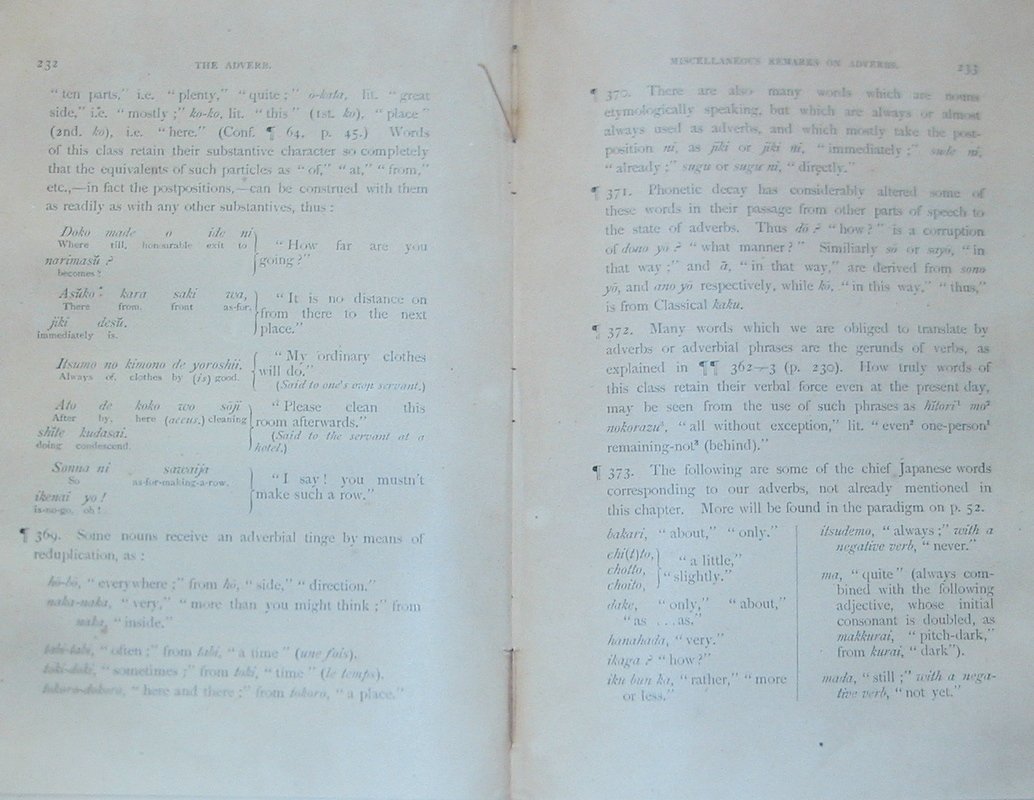 232
THE ADVERB.
“ ten parts,” i.e. “ plenty,” “ quite ;” ō-kata, lit. “ great
side,” i.e. “ mostly ;” ko-ko, lit. “ this ” (1st. ko). “ place ”
(2nd. ko), i.e. “ here.” (Conf. ¶ 64. p. 45.) Words
of this class retain their substantive character so completely
that the equivalents of such particles as “ of,” “ at,” “ from,”
etc.,—in fact the postpositions,—can be construed with them
as readily as with any other substantives, thus :
Doko made o ide ni
Where till, honourable exit to
narimasŭ ?
becomes?
“ How far are you
going ?”
Asŭko kara saki wa,
There from, front as-for,
jiki desŭ.
immediately is.
“ It is no distance on
from there to the next
place.”
Itsumo no kimono de yoroshii.
Always of, clothes by (is) good.
“ My ordinary clothes
will do.”
(Said to one's own servant.)
Ato de koko wo sōji
After by, here (accus.) cleaning
shĭte kudasai.
doing condescend.
“ Please clean this
room afterwards.”
(Said to the servant at a
hotel.)
Sonna ni sawaija
So as-for-making-a-row,
ikenai yo !
is-no-go, oh !
“ I say ! you mustn't
make such a row.”
¶ 369. Some nouns receive an adverbial tinge by means of
reduplication, as :
hō-bō, “ everywhere ;” from hō, “ side,” “ direction.”
naka-naka, “ very,” “ more than you might think ;” from
naka, “ inside.”
tabi-tabi, “ often ;” from tabi, “ a time ” (une fois).
toki-doki, “ sometimes ;” from toki, “ time ” (le temps).
tokoro-dokoro, “ here and there ;” from tokoro, “ a place.”
MISCELLANEOUS REMARKS ON ADVERBS.
233
¶ 370. There are also many words which are nouns
etymologically speaking, but which are always or almost
always used as adverbs, and which mostly take the post-
position ni, as jiki or jiki ni, “ immediately ;” sude ni,
“ already ;” sugu or sugu ni, “ directly.”
¶ 371. Phonetic decay has considerably altered some of
these words in their passage from other parts of speech to
the state of adverbs. Thus dō ? “ how ? ” is a corruption
of dono yō ? “ what manner ? ” Similiarly sō or sayō, “ in
that way ;” and ā, “ in that way,” are derived from sono
yō, and ano yō respectively, while kō, “ in this way,” “ thus,”
is from Classical kaku.
¶ 372. Many words which we are obliged to translate by
adverbs or adverbial phrases are the gerunds of verbs, as
explained in ¶¶ 362—3 (p. 230). How truly words of
this class retain their verbal force even at the present day,
may be seen from the use of such phrases as hĭtori¹ mo²
nokorazu³, “ all without exception,” lit. “ even² one-person¹
remaining-not³ (behind).”
¶ 373. The following are some of the chief Japanese words
corresponding to our adverbs, not already mentioned in
this chapter. More will be found in the paradigm on p. 52.
bakari, “ about,” “ only.”
chi(t)to,
chotto,
choito,
“ a little,”
“ slightly.”
dake, “ only,” “ about,”
“ as . . . as.”
hanahada, “ very.”
ikaga ? “ how ?”
iku bun ka, “ rather,” “ more
or less.”
itsudemo, “ always ;” with a
negative verb, “ never.”
ma, “ quite ” (always com-
bined with the following
adjective, whose initial
consonant is doubled, as
makkurai, “ pitch-dark,”
from kurai, “ dark”).
mada, “ still ;” with a nega-
tive verb, “ not yet.”